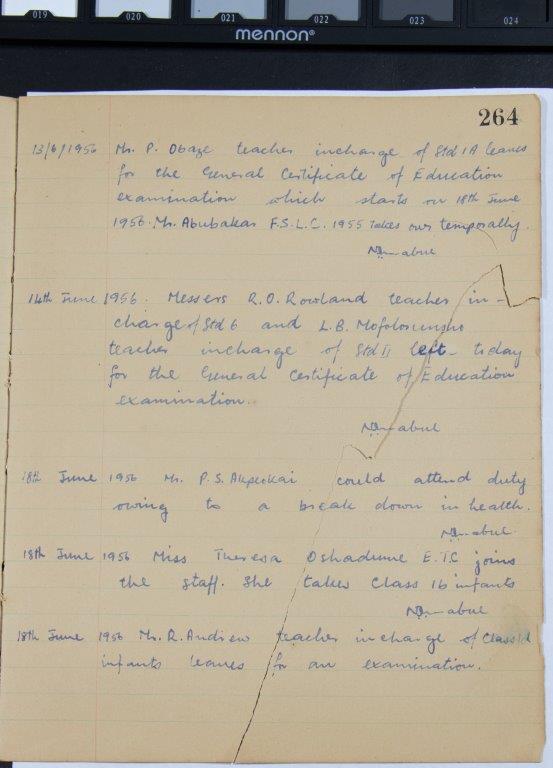 019 020 021 022 023 024
mennon®
264
13/6/1956 Mr. P. Obaze teacher incharge of Std 1A leaves
for the General Certificate of Education
examination which starts on 18th June
1956. Mr. Abubakar F.S.L.C. 1955 takes over temporally.
14th June 1956. Messers R.O. Rowland teacher in-
charge of Std 6 and L.B. Mofolorunsho
teacher incharge of Std II left today
for the General Certificate of Education
examination.
18th June 1956 Mr. P.S. Akpeokai could attend duty
owing to a break down in health.
18th June 1956 Miss Theresa Oshadume E.T.C joins
the staff. She takes Class 1b infants
18th June 1956 Mr. R. Andrew teacher incharge of Class 1d
infants leaves for an examination.